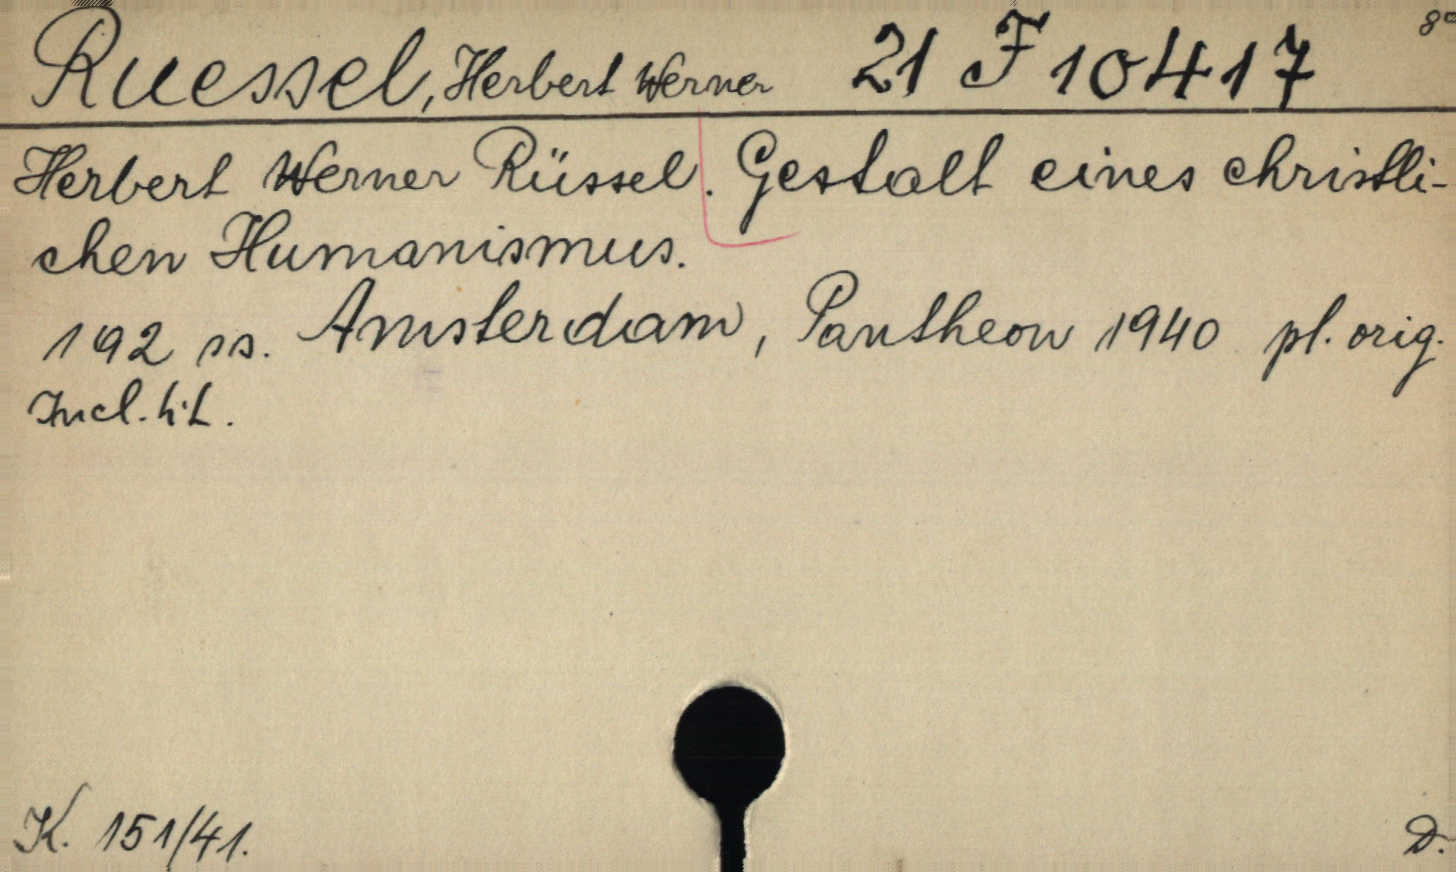 Ruessel, Herbert Werner 21 F 10417 8°
Herbert Werner Rüssel. Gestalt eines christli-
chen Humanismus.
192 ss. Amsterdam, Pantheon 1940 pl. orig.
Incl. tit.
K. 151/41. D.